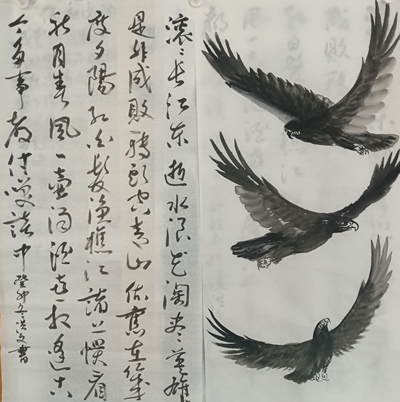 滚滚长江东逝水浪花淘尽英雄
是非成败轉頭空青山依舊在幾
度夕陽红白髮渔樵江渚上惯看
秋月春风一壶濁酒喜相逢古
今多事都付笑談中
癸卯冬文書